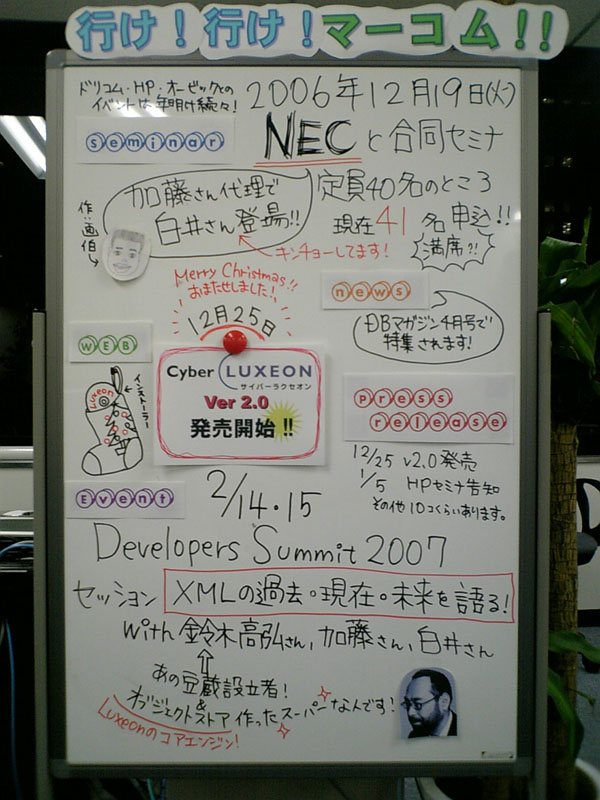 行け!行け!マーコム!!
ドリコム・HP・オーゼックとの
イベントは年明け続々!
2006年12月19日(火)
seminar
NECと合同セミナ
加藤さん代理で
白井さん登場!!
定員40名のところ
現在41名申込!!
満席?!
キンチョーしてます!
作:画伯
Merry Christmas!!
おまたせしました!
12月25日
news
DBマガジン4月号で
特集されます!
WEB
インストーラー
Luxeon
Cyber LUXEON
サイバーラクセオン
Ver 2.0
発売開始!!
press
release
12/25 v2.0発売
1/5 HPセミナ告知
その他10コくらいあります。
Event
2/14・15
Developers Summit 2007
セッション XMLの過去。現在。未来を語る!
with 鈴木高弘さん, 加藤さん, 白井さん
あの豆蔵設立者!
&
オブジェクトストア作ったスーパーな人です!
Luxeonのコアエンジン!